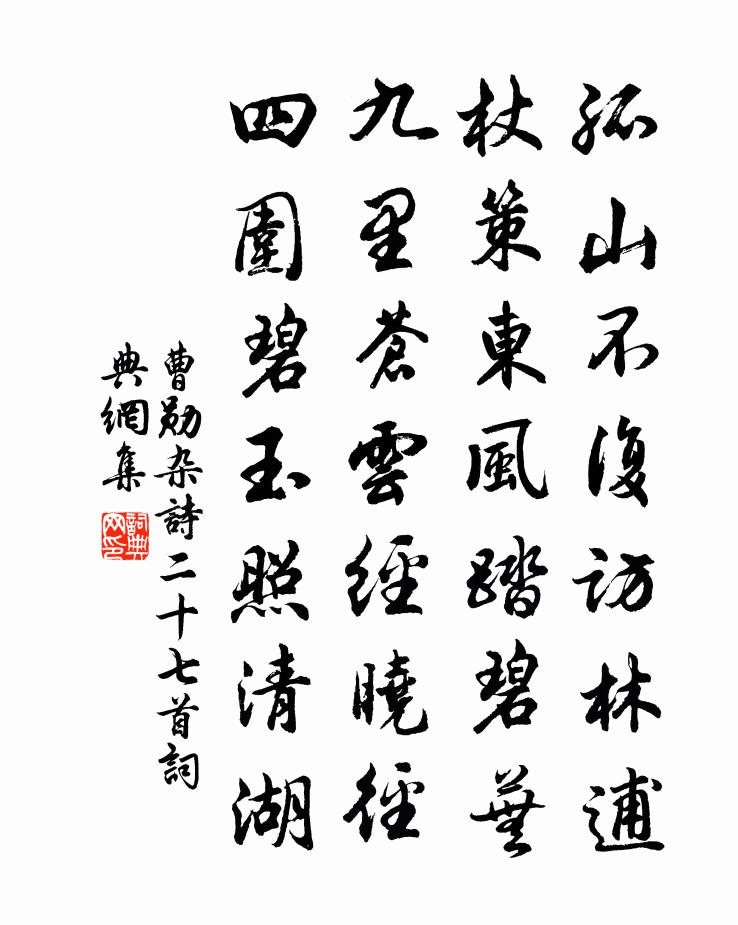 孤山不復訪林逋
杖策東風踏碧蕪
九里蒼雲經曉徑
四圍碧玉照清湖
曹勛杂詩二十七首詞
典網集
詞典
网印